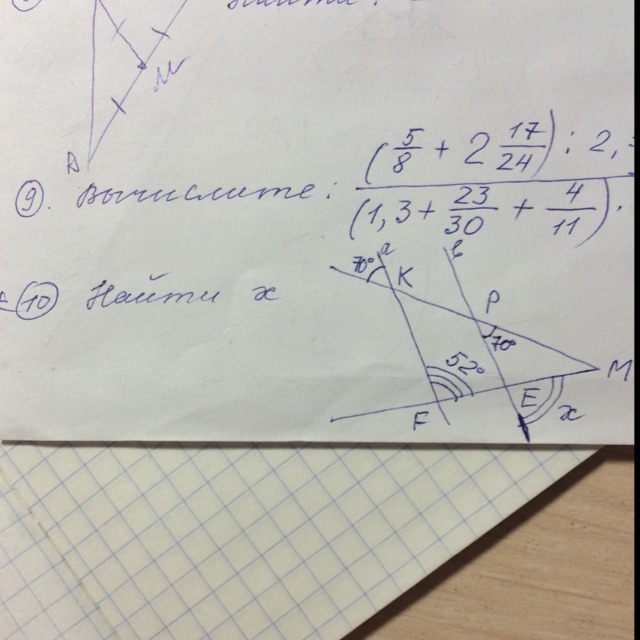 N
A
9. Вычислите: (5/8 + 2 17/24) : 2,
(1,3 + 23/30 + 4/11) ·
10 Найти x
a
b
70°
K
P
70°
M
52°
F
E
x